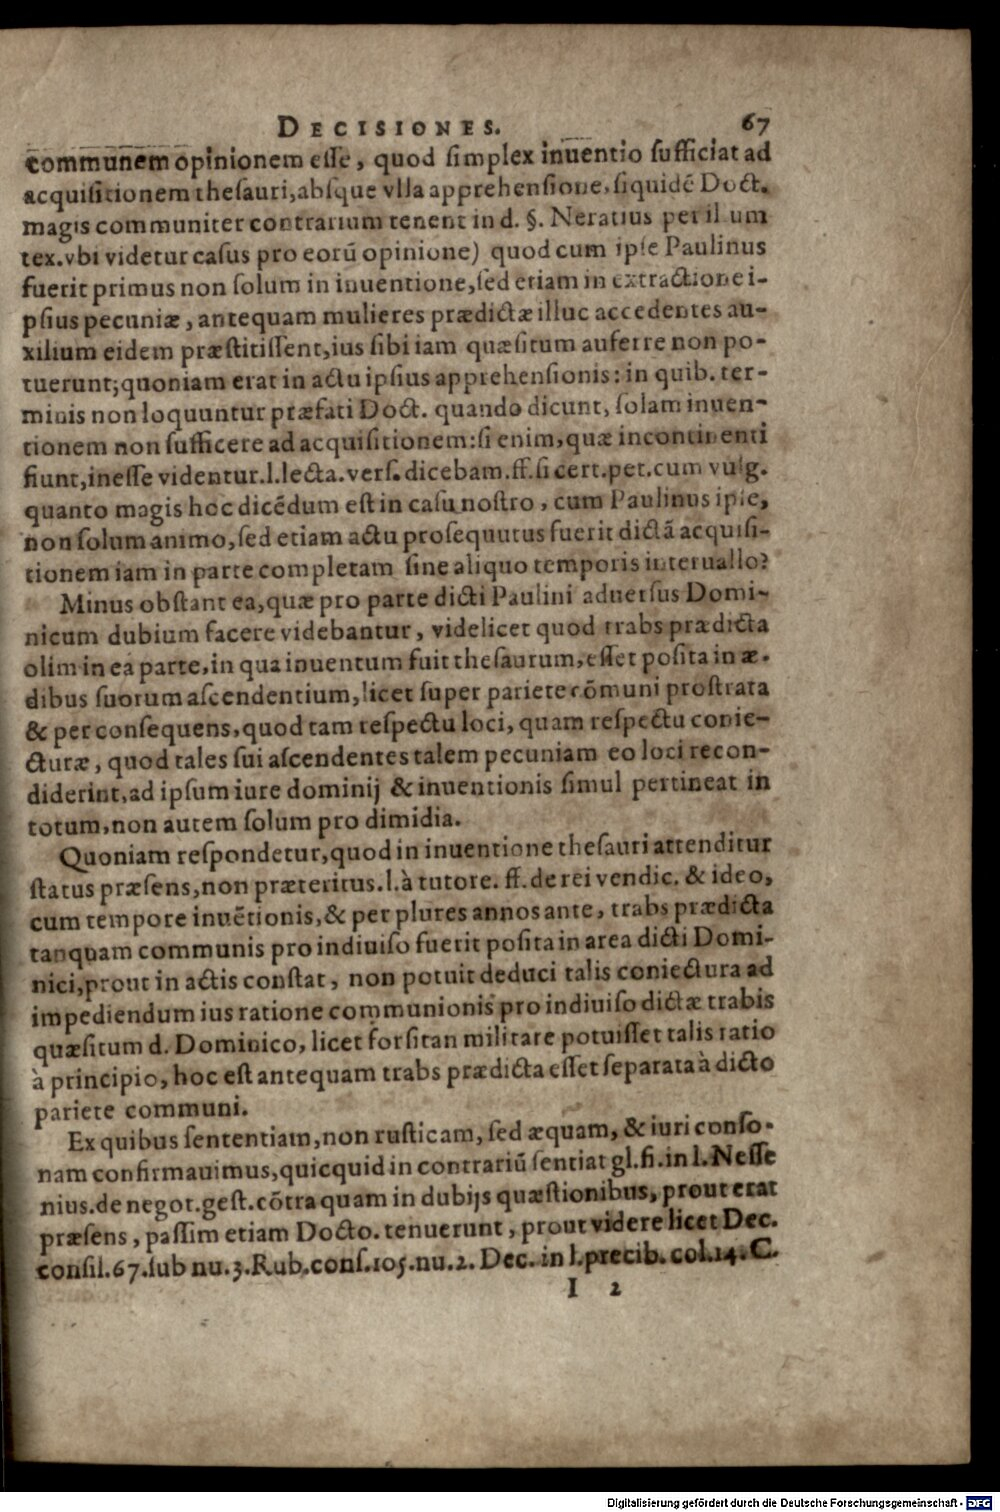 DECISIONES. 67
communem opinionem esse, quod simplex inuentio sufficiat ad
acquisitionem thesauri, absque vlla apprehensione, siquidē Doct.
magis communiter contrarium tenent in d. §. Neratius per illum
tex. vbi videtur casus pro eorū opinione) quod cum ipse Paulinus
fuerit primus non solum in inuentione, sed etiam in extractione i-
psius pecuniæ, antequam mulieres prædictæ illuc accedentes au-
xilium eidem præstitissent, ius sibi iam quæsitum auferre non po-
tuerunt; quoniam erat in actu ipsius apprehensionis: in quib. ter-
minis non loquuntur præfati Doct. quando dicunt, solam inuen-
tionem non sufficere ad acquisitionem: si enim, quæ incontinenti
fiunt, inesse videntur. l. lecta. vers. dicebam. ff. si cert. pet. cum vulg.
quanto magis hoc dicēdum est in casu nostro, cum Paulinus ipse,
non solum animo, sed etiam actu prosequutus fuerit dictā acquisi-
tionem iam in parte completam sine aliquo temporis interuallo?
Minus obstant ea, quæ pro parte dicti Paulini aduersus Domi-
nicum dubium facere videbantur, videlicet quod trabs prædicta
olim in ea parte, in qua inuentum fuit thesaurum, esset posita in æ-
dibus suorum ascendentium, licet super pariete cōmuni prostrata
& per consequens, quod tam respectu loci, quam respectu conie-
cturæ, quod tales sui ascendentes talem pecuniam eo loci recon-
diderint, ad ipsum iure dominij & inuentionis simul pertineat in
totum, non autem solum pro dimidia.
Quoniam respondetur, quod in inuentione thesauri attenditur
status præsens, non præteritus. l. à tutore. ff. de rei vendic. & ideo,
cum tempore inuētionis, & per plures annos ante, trabs prædicta
tanquam communis pro indiuiso fuerit posita in area dicti Domi-
nici, prout in actis constat, non potuit deduci talis coniectura ad
impediendum ius ratione communionis pro indiuiso dictæ trabis
quæsitum d. Dominico, licet forsitan militare potuisset talis ratio
à principio, hoc est antequam trabs prædicta esset separata à dicto
pariete communi.
Ex quibus sententiam, non rusticam, sed æquam, & iuri conso-
nam confirmauimus, quicquid in contrariū sentiat gl. fi. in l. Nesse
nius. de negot. gest. cōtra quam in dubijs quæstionibus, prout erat
præsens, passim etiam Docto. tenuerunt, prout videre licet Dec.
consil. 67. sub nu. 3. Rub. cons. 105. nu. 2. Dec. in l. precib. col. 14. C.
I 2
Digitalisierung gefördert durch die Deutsche Forschungsgemeinschaft - DFG